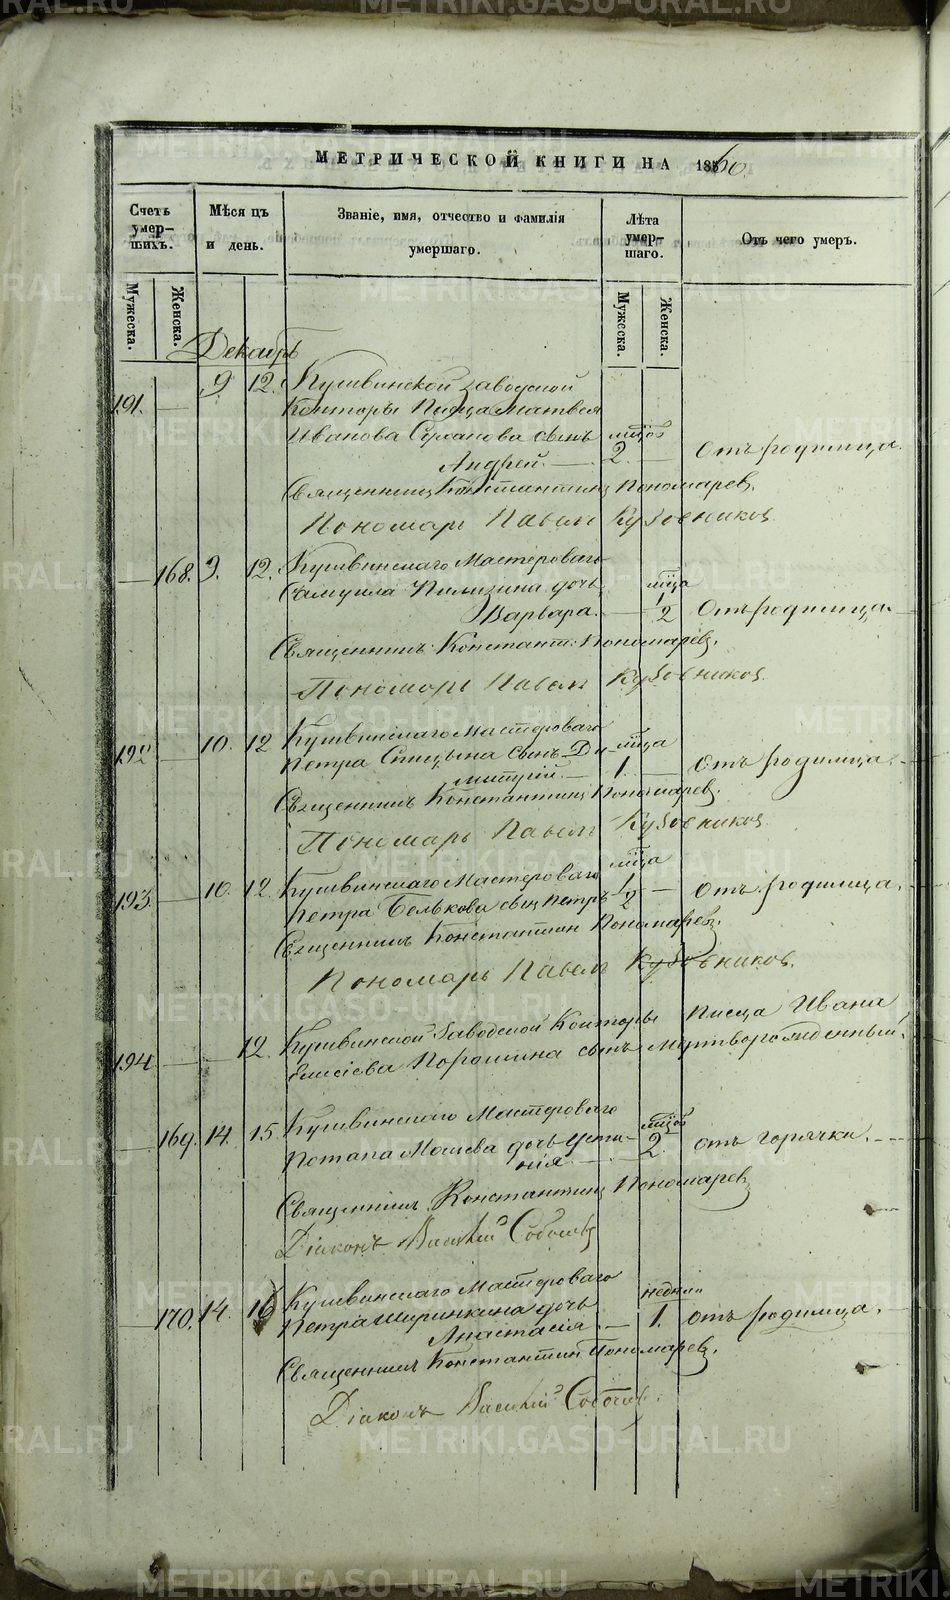 МЕТРИЧЕСКОЙ КНИГИ НА 1860.
Счетъ умер-шихъ.
Мѣсяцъ и день.
Званіе, имя, отчество и фамилія умершаго.
Лѣта умер-шаго.
Отъ чего умеръ.
Мужеска.
Женска.
Мужеска.
Женска.
Декабрь
191. — 9. 12. Кушвинской заводской
Конторы Писца Матвея
Иванова сынъ мѣсяц.
Андрей. — 2. — Отъ родимца.
Священникъ Константинъ Пономаревъ.
Пономарь Павелъ Кузовников
— 168. 9. 12. Кушвинскаго Мастероваго
Самуила дочь мѣсяца
Варвара. — 1/2 Отъ родимца. —
Священникъ Констант: Пономаревъ.
Пономарь Павелъ Кузовников
192 — 10. 12 Кушвинскаго Мастероваго
Петра Спицына сынъ Ди- мѣсяца
митрій. — 1. — отъ родимца. —
Священникъ Константинъ Пономаревъ.
Пономарь Павелъ Кузовников
193. — 10. 12. Кушвинскаго Мастероваго мѣсяца
Петра Белькова сынъ Петръ 1/2 — отъ родимца.
Священникъ Константин Пономаревъ.
Пономарь Павелъ Кузовников.
194 — 12. Кушвинской Заводской Конторы писца Ивана
Елисіева Порошина сынъ мертворожденный.
— 169. 14. 15. Кушвинскаго Мастероваго мѣсяц.
Потапа дочь Усти-
нія. — 2. отъ горячки. —
Священникъ Константинъ Пономаревъ
Діаконъ Василій Соболевъ
— 170. 14. 16 Кушвинскаго Мастероваго недѣли
Петра Ширинкина дочь
Анастасія. — 1. отъ родимца.
Священникъ Константин Пономаревъ.
Діаконъ Василій Соболевъ.
METRIKI.GASO-URAL.RU